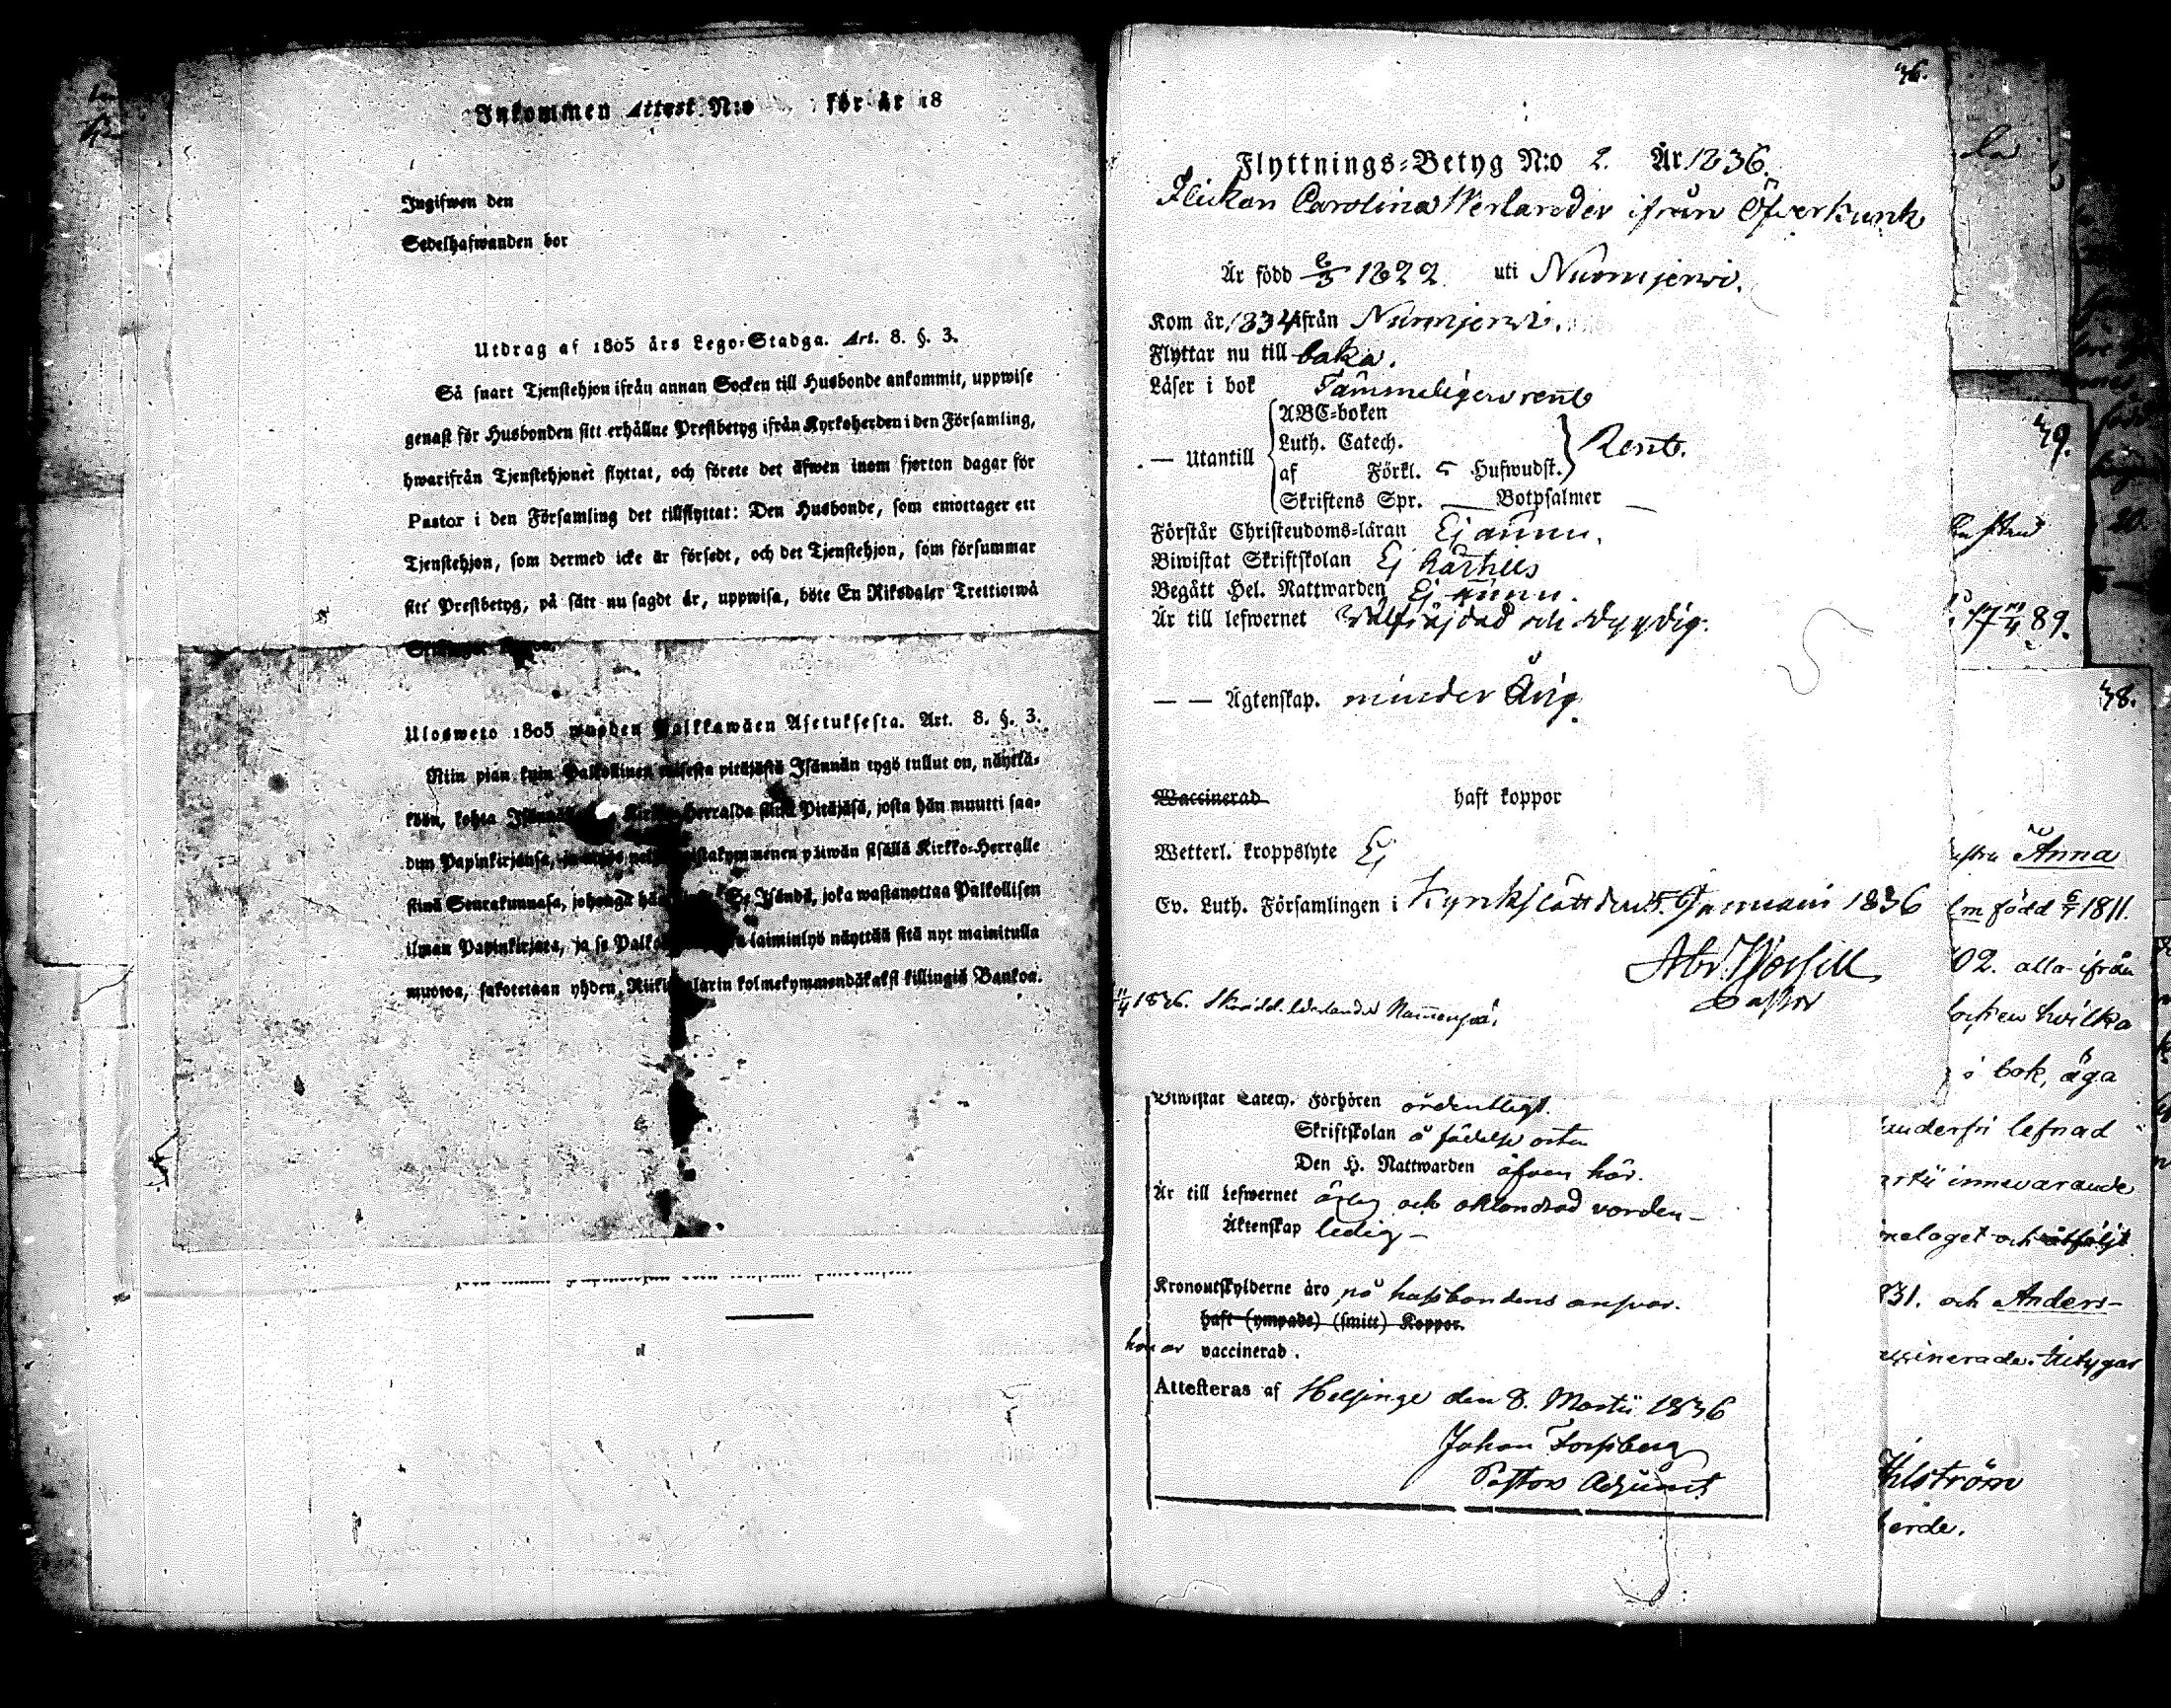 Inkommen Attest N:o för år 18
Ingifwen den
Sedelhafwanden bor
Utdrag af 1805 års Lego-Stadga. Art. 8. §. 3.
Så snart Tjenstehjon ifrån annan Socken till Husbonde ankommit, uppwise
genast för Husbonden sitt erhållne Prestbetyg ifrån Kyrkoherden i den Församling,
hwarifrån Tjenstehjonet flyttat, och förete det äfwen inom fjorton dagar för
Pastor i den Församling det tillflyttat: Den Husbonde, som emottager ett
Tjenstehjon, som dermed icke är försedt, och det Tjenstehjon, som försummar
sitt Prestbetyg, på sätt nu sagdt är, uppwisa, böte En Riksdaler Trettiotwå
Ulosweto 1805 wuoden Palkkawäen Asetuksesta. Art. 8. §. 3.
Niin pian kuin Palkollinen toisesta pitäjästä Isännän tygö tullut on, näyttä-
köön, kohta Kirkko-Herralda siinä Pitäjäsä, josta hän muutti saa-
dun Papinkirjansa, päiwän sisällä Kirkko-Herralle
siinä Seurakunnasa, johonga Se Isändä, joka wastanottaa Palkollisen
ilman Papinkirjata, ja se laiminlyö näyttää sitä nyt mainitulla
muotoa, sakotetaan yhden Riikintalarin kolmekymmendäkaksi killingiä Bankoa.
46.
Flyttnings-Betyg N:o 2. År 1836.
Flickan Carolina Werlander ifrån Öfverkurk
Är född 6/3 1822 uti Nurmijerwi.
Kom år 1834 ifrån Nurmijerwi.
Flyttar nu till baka.
Läser i bok Tämmeligen rent
ABC-boken
Luth. Catech.
— Utantill Rent.
af Förkl. 5 Hufwudst.
Skriftens Spr. — Botpsalmer —
Förstår Christendoms-läran Ej ännu.
Biwistat Skriftskolan Ej härtills
Begått Hel. Nattwarden Ej ännu.
Är till lefwernet wälfräjdad och dygdig.
— — Ägtenskap. minder årig.
Waccinerad haft koppor
Wetterl. kroppslyte Ej
Ev. Luth. Församlingen i Kyrkslätt den 5. Januari 1836
Pastor
Biwistat Catech. Förhören ordentligt.
Skriftskolan å födelse orten
Den H. Nattwarden äfven här.
Är till Lefwernet ärlig och oklandrad vorden —
Äktenskap ledig —
Kronoutskylderne äro på husbondens ansvar.
haft (ympade) (smitt) Koppor.
hon är vaccinerad.
Attesteras af Helsinge den 8. Martii 1836
Johan Forssberg
Pastors Adjunct
49.
89.
48.
Anna
född 6/7 1811.
02. alla ifrån
hvilka
i bok, äga
lefnad
innevarande
och åtföljt
31. och Anders-